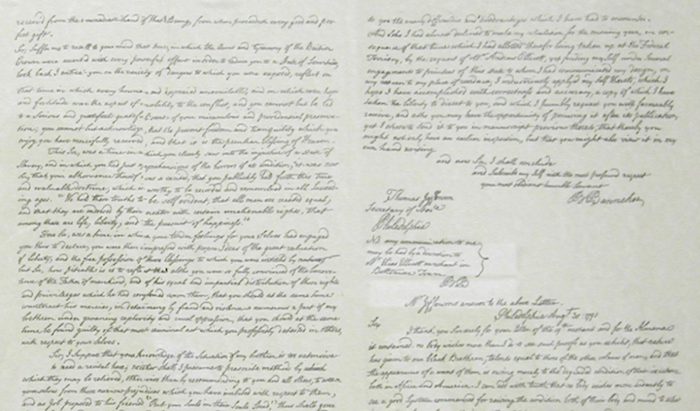 received from the immediate hand of that Being, from whom proceedeth every good and per-
fect gift.
Sir, Suffer me to recall to your mind that time, in which the Arms and tyranny of the British
Crown were exerted with every powerful effort in order to reduce you to a State of Servitude,
look back I entreat you on the variety of dangers to which you were exposed, reflect on
that time in which every human aid appeared unavailable, and in which even hope
and fortitude wore the aspect of inability to the conflict, and you cannot but be led
to a Serious and grateful Sense of your miraculous and providential preserva-
tion; you cannot but acknowledge, that the present freedom and tranquility which you
enjoy you have mercifully received, and that it is the peculiar blessing of Heaven.
This Sir, was a time in which you clearly saw into the injustice of a State of
Slavery, and in which you had just apprehensions of the horrors of its condition, it was now
Sir, that your abhorrence thereof was so excited, that you publickly held forth this true
and valuable doctrine, which is worthy to be recorded and remembered in all Succeed-
ing ages. "We hold these truths to be Self evident, that all men are created equal,
and that they are endowed by their creator with certain unalienable rights, that
among these are life, liberty, and the pursuit of happiness."
Here Sir, was a time in which your tender feelings for your selves had engaged
you thus to declare, you were then impressed with proper ideas of the great valuation
of liberty, and the free possession of those blessings to which you were entitled by nature;
but Sir, how pitiable is it to reflect that altho you were so fully convinced of the benevo-
lence of the Father of mankind, and of his equal and impartial distribution of those rights
and privileges which he had conferred upon them, that you should at the same time
counteract his mercies, in detaining by fraud and violence so numerous a part of my
brethren under groaning captivity and cruel oppression, that you should at the Same
time be found guilty of that most criminal act, which you professedly detested in others,
with respect to your selves.
Sir, I suppose that your knowledge of the situation of my brethren is too extensive
to need a recital here; neither shall I presume to prescribe methods by which
they may be relieved, other wise than by recommending to you and all others, to wean
yourselves from these narrow prejudices which you have imbibed with respect to them,
and as Job proposed to his friends "Put your Souls in their Souls stead," thus shall your
to you the many difficulties and disadvantages which I have had to encounter.
And altho I had almost declined to make my calculation for the ensuing year, in con-
sequence of that time which I had allotted therefor being taken up at the Federal
Territory, by the request of Mr. Andrew Ellicott, yet finding my Self under Several
engagements to printers of this State to whom I had communicated my design, on
my return to my place of residence, I industriously apply'd my Self thereto, which I
hope I have accomplished with correctness and accuracy, a copy of which I have
taken the liberty to direct to you, and which I humbly request you will favourably
receive, and altho you may have the opportunity of perusing it after its publication,
yet I chose to send it to you in manuscript previous thereto, that thereby you
might not only have an earlier inspection, but that you might also view it in my
own hand writing
and now Sir, I shall conclude
and Subscribe my Self with the most profound respect
your most Obedient humble Servant
B Banneker
Thomas Jefferson
Secretary of State
Philadelphia
NB any communication to me
may be had by a direction to
Mr. Elias Ellicott merchant in
Baltimore Town
B B
Mr. Jeffersons answer to the above Letter.
Philadelphia Augt. 30 1791
Sir
I thank you Sincerely for your letter of the 19th instant and for the Almanac
it contained. no body wishes more than I do to see such proofs as you exhibit, that nature
has given to our black brethren, talents equal to those of the other colours of men, and that
the appearance of a want of them is owing merely to the degraded condition of their existence
both in Africa and America. I can add with truth that no body wishes more ardently to
see a good System commenced for raising the condition both of their body and mind to what